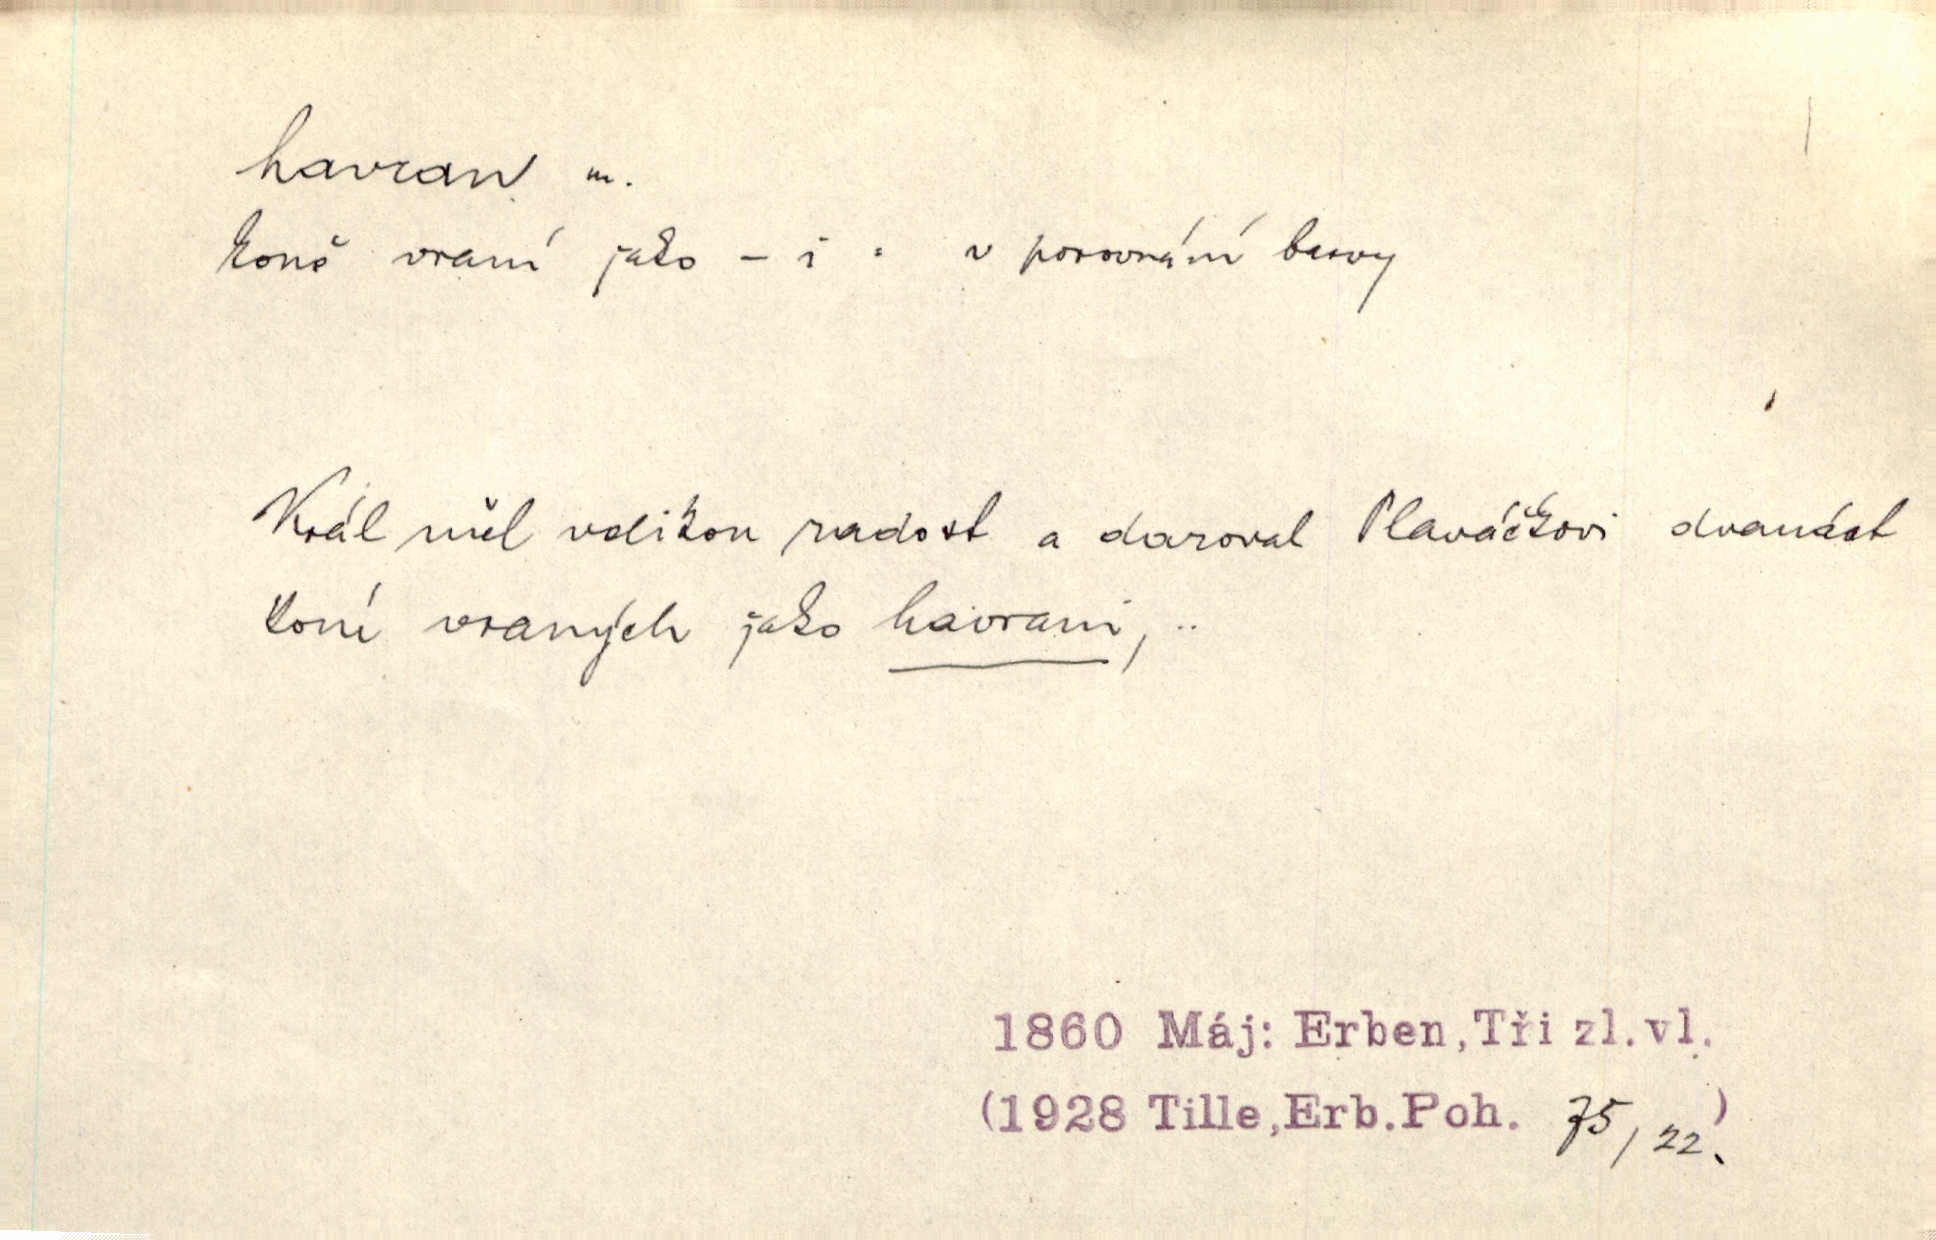 havran m.
koně vraní jako – i : v porovnání barvy
Král měl velikou radost a daroval Plaváčkovi dvanáct
koní vraných jako havrani, ..
1860 Máj: Erben,Tři zl.vl.
(1928 Tille,Erb.Poh. 75/22.)